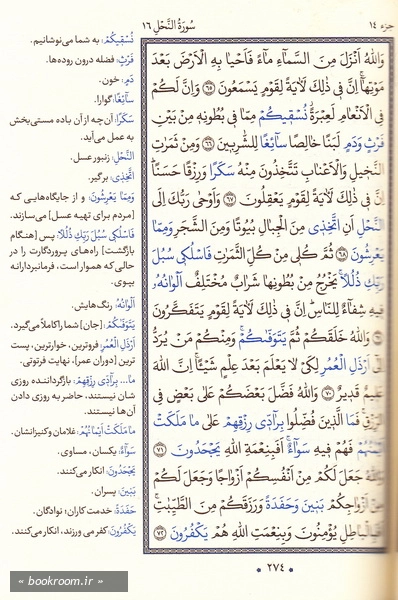 جزء ١٤
سُورَةُ النَّحْلِ ١٦
وَاللَّهُ أَنْزَلَ مِنَ السَّمَاءِ مَاءً فَأَحْيَا بِهِ الْأَرْضَ بَعْدَ
مَوْتِهَا إِنَّ فِي ذَلِكَ لَآيَةً لِقَوْمٍ يَسْمَعُونَ ٦٥ وَإِنَّ لَكُمْ
فِي الْأَنْعَامِ لَعِبْرَةً نُسْقِيكُمْ مِمَّا فِي بُطُونِهِ مِنْ بَيْنِ
فَرْثٍ وَدَمٍ لَبَنًا خَالِصًا سَائِغًا لِلشَّارِبِينَ ٦٦ وَمِنْ ثَمَرَاتِ
النَّخِيلِ وَالْأَعْنَابِ تَتَّخِذُونَ مِنْهُ سَكَرًا وَرِزْقًا حَسَنًا
إِنَّ فِي ذَلِكَ لَآيَةً لِقَوْمٍ يَعْقِلُونَ ٦٧ وَأَوْحَى رَبُّكَ إِلَى
النَّحْلِ أَنِ اتَّخِذِي مِنَ الْجِبَالِ بُيُوتًا وَمِنَ الشَّجَرِ وَمِمَّا
يَعْرِشُونَ ٦٨ ثُمَّ كُلِي مِنْ كُلِّ الثَّمَرَاتِ فَاسْلُكِي سُبُلَ
رَبِّكِ ذُلُلًا يَخْرُجُ مِنْ بُطُونِهَا شَرَابٌ مُخْتَلِفٌ أَلْوَانُهُ
فِيهِ شِفَاءٌ لِلنَّاسِ إِنَّ فِي ذَلِكَ لَآيَةً لِقَوْمٍ يَتَفَكَّرُونَ
٦٩ وَاللَّهُ خَلَقَكُمْ ثُمَّ يَتَوَفَّاكُمْ وَمِنْكُمْ مَنْ يُرَدُّ
إِلَى أَرْذَلِ الْعُمُرِ لِكَيْ لَا يَعْلَمَ بَعْدَ عِلْمٍ شَيْئًا إِنَّ اللَّهَ
عَلِيمٌ قَدِيرٌ ٧٠ وَاللَّهُ فَضَّلَ بَعْضَكُمْ عَلَى بَعْضٍ فِي
الرِّزْقِ فَمَا الَّذِينَ فُضِّلُوا بِرَادِّي رِزْقِهِمْ عَلَى مَا مَلَكَتْ
أَيْمَانُهُمْ فَهُمْ فِيهِ سَوَاءٌ أَفَبِنِعْمَةِ اللَّهِ يَجْحَدُونَ ٧١
وَاللَّهُ جَعَلَ لَكُمْ مِنْ أَنْفُسِكُمْ أَزْوَاجًا وَجَعَلَ لَكُمْ
مِنْ أَزْوَاجِكُمْ بَنِينَ وَحَفَدَةً وَرَزَقَكُمْ مِنَ الطَّيِّبَاتِ
أَفَبِالْبَاطِلِ يُؤْمِنُونَ وَبِنِعْمَتِ اللَّهِ هُمْ يَكْفُرُونَ ٧٢
نُسْقِيكُمْ: به شما می‌نوشانیم.
فَرْثٍ: فضله درون روده‌ها.
دَمٍ: خون.
سَائِغًا: گوارا.
سَكَرًا: آن چه از آن باده مستی‌بخش
به عمل می‌آید.
النَّحْلِ: زنبور عسل.
اتَّخِذِي: برگیر.
وَمِمَّا يَعْرِشُونَ: و از جایگاه‌هایی که
[مردم برای تهیه عسل] می‌سازند.
فَاسْلُكِي سُبُلَ رَبِّكِ ذُلُلًا: پس [هنگام
بازگشت] راه‌های پروردگارت را در
حالی که هموار است، فرمانبردارانه
بپوی.
أَلْوَانُهُ: رنگ‌هایش.
يَتَوَفَّاكُمْ: [جان] شما را کاملاً می‌گیرد.
أَرْذَلِ الْعُمُرِ: فروترین، خوارترین، پست
ترین [دوران عمر]، نهایت فرتوتی.
مَا... بِرَادِّي رِزْقِهِمْ: بازگرداننده روزی
شان نیستند، حاضر به روزی دادن
آن‌ها نیستند.
مَا مَلَكَتْ أَيْمَانُهُمْ: غلامان و کنیزانشان.
سَوَاءٌ: یکسان، مساوی.
يَجْحَدُونَ: انکار می‌کنند.
بَنِينَ: پسران.
حَفَدَةً: خدمت کاران؛ نوادگان.
يَكْفُرُونَ: کفر می ورزند، انکار می‌کنند.
٢٧٤
« bookroom.ir »